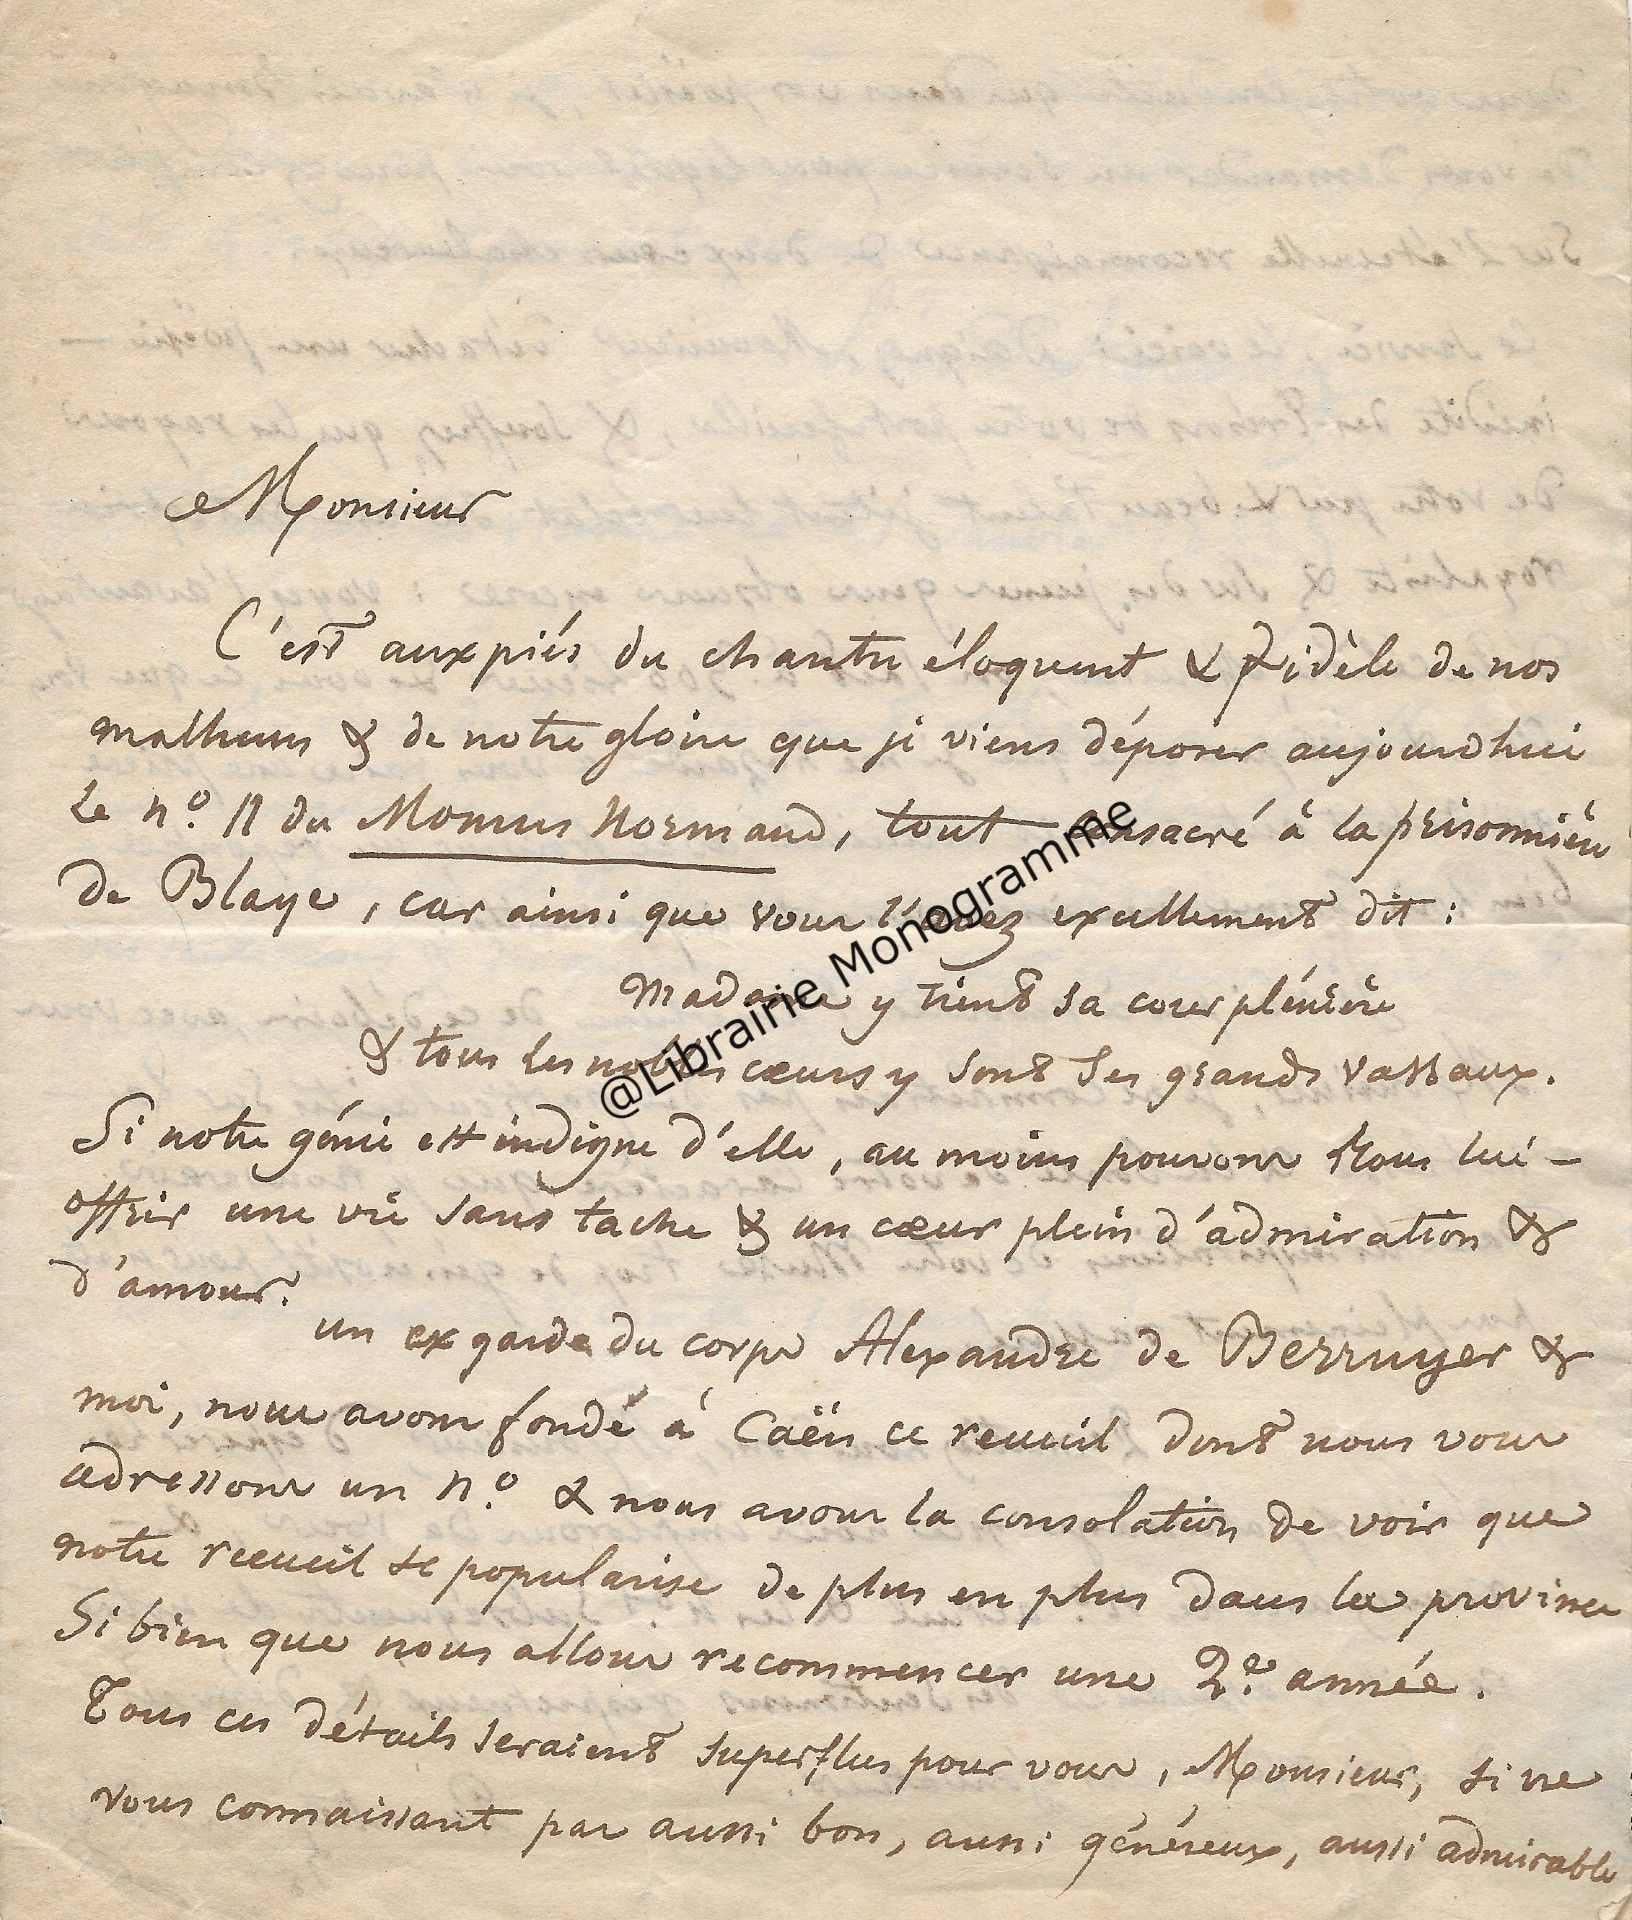 Monsieur
C'est aux piés du chantre éloquent & fidèle de nos
malheurs & de notre gloire que je viens déposer aujourdhui
le n.o 11 du Momus Normand, tout consacré à la prisonnière
de Blaye, car ainsi que vous l'avez excellement dit :
Madame y tient sa cour plénière
& tous les nobles cœurs y sont ses grands vassaux.
Si notre génie est indigne d'elle, au moins pouvons nous lui -
offrir une vie sans tache & un cœur plein d'admiration &
d'amour.
un ex garde du corps Alexandre de Berruyer &
moi, nous avons fondé à Caën ce recueil dont nous vous
adressons un n.o & nous avons la consolation de voir que
notre recueil se popularise de plus en plus dans la province
Si bien que nous allons recommencer une 2.e année.
Tous ces détails seraient superflus pour vous, Monsieur, si ne
vous connaissant pas aussi bon, aussi généreux, aussi admirable
@Librairie Monogramme